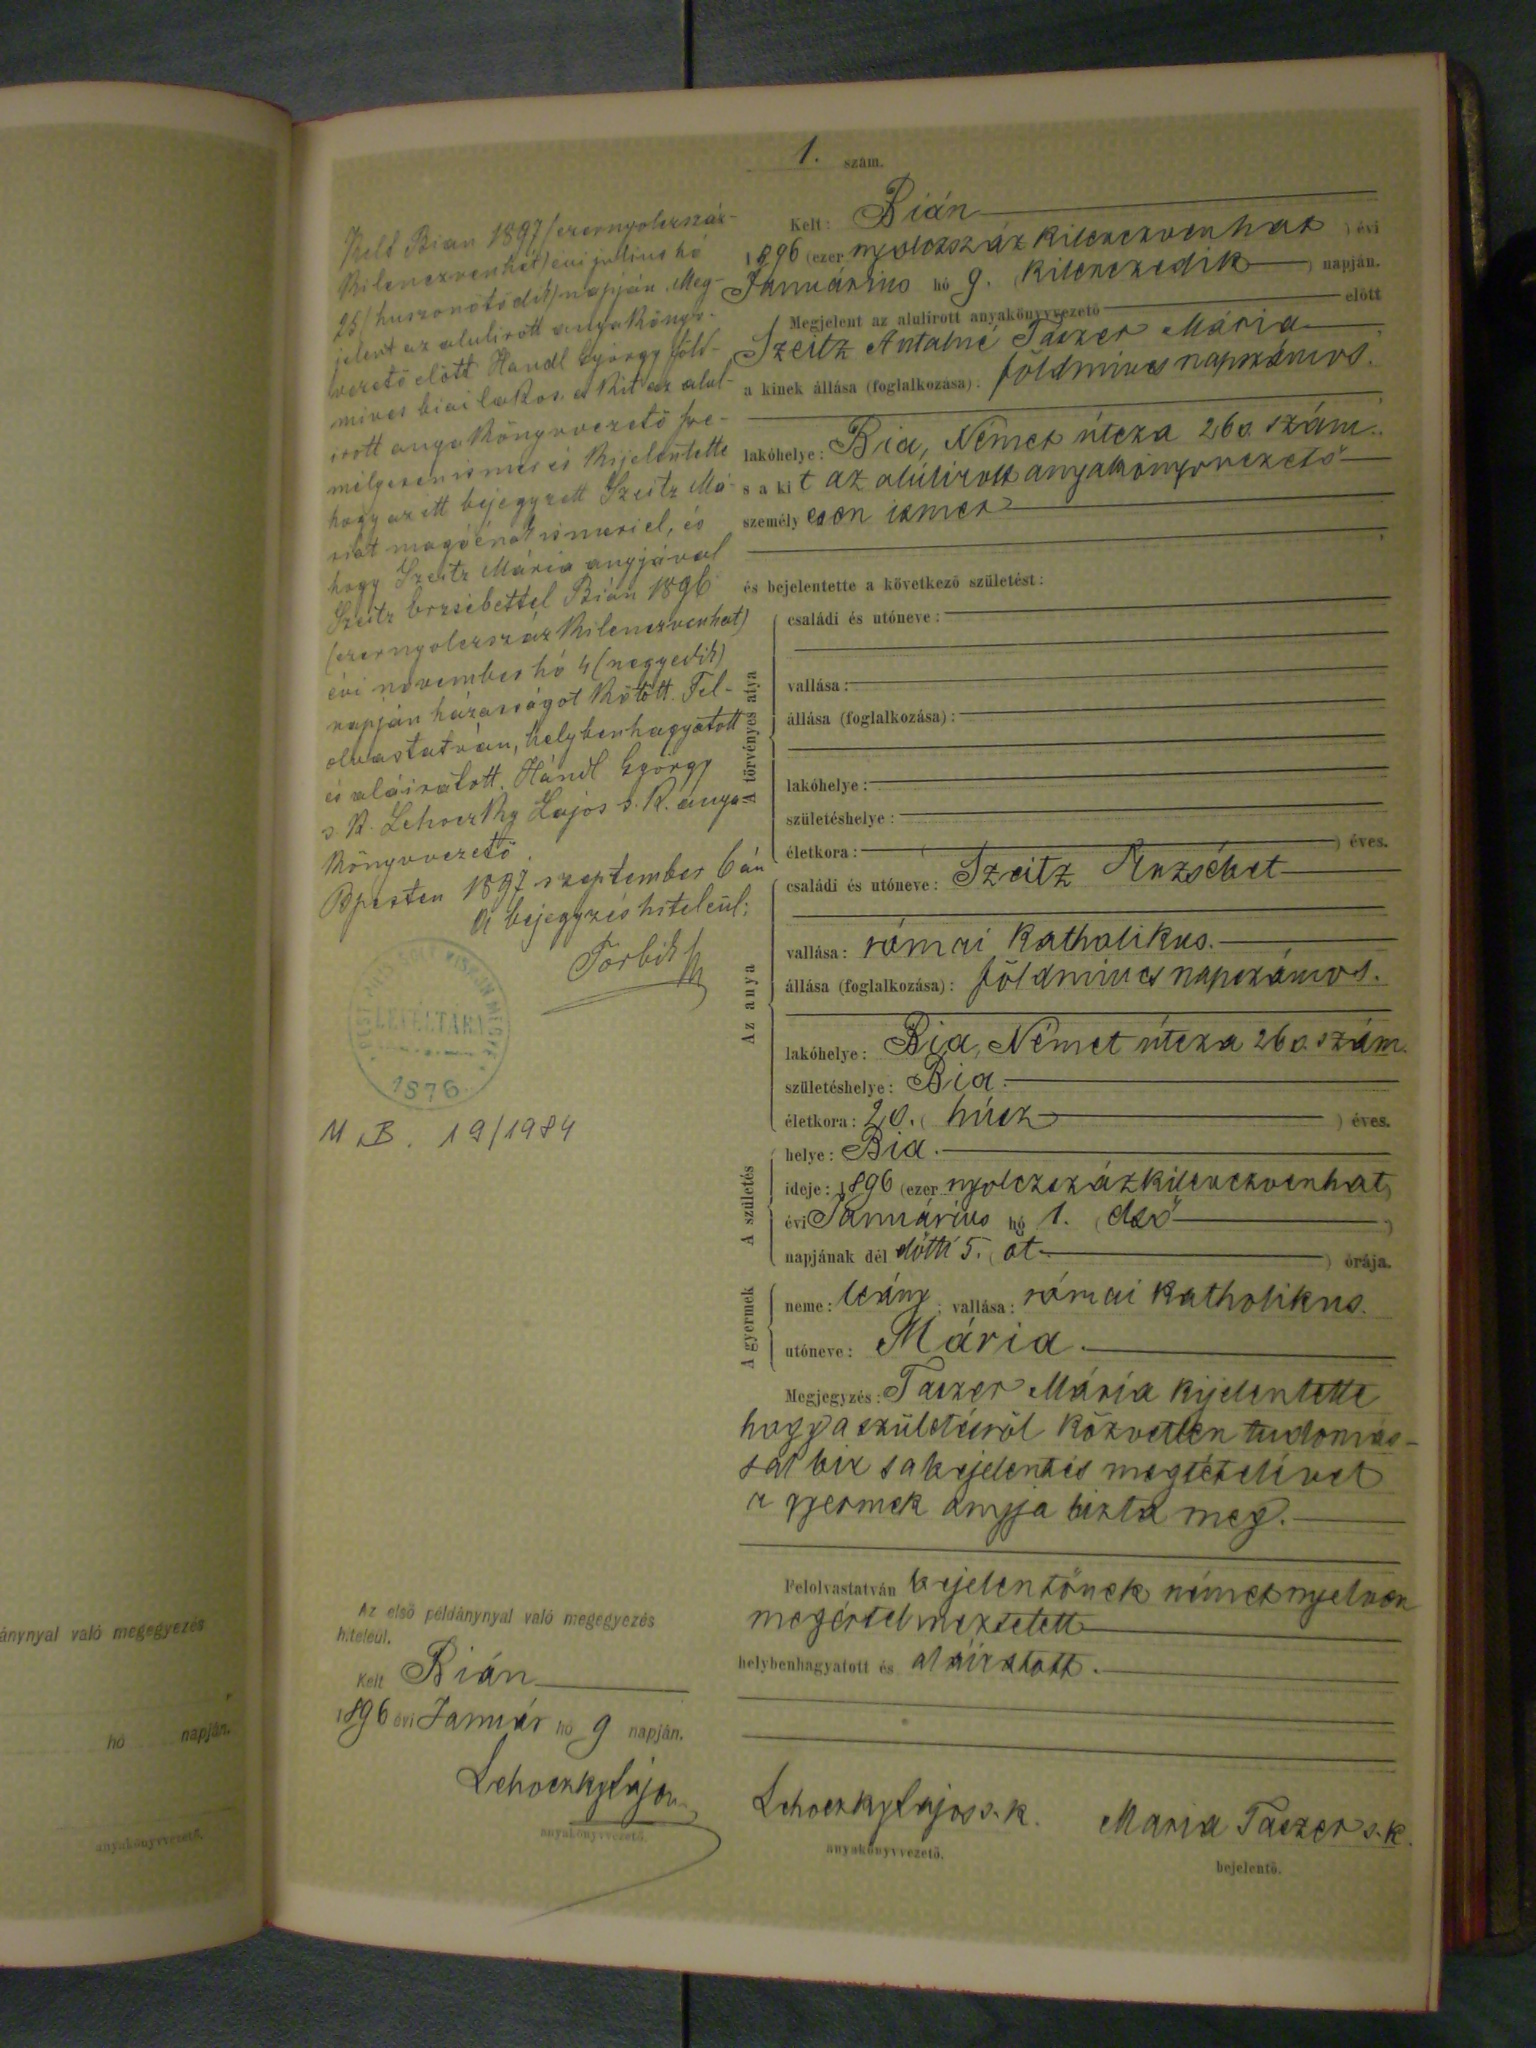 1. szám.
Kelt: Bián
1896 (ezer nyolczszáz kilenczvenhat) évi
Januárius hó 9. (kilenczedik) napján.
Megjelent az alulirott anyakönyvvezető előtt
Szeitz Antalné Taszer Mária
a kinek állása (foglalkozása): földmives napszámos.
lakóhelye: Bia, Német útcza 260. szám.
s a kit az alúlirott anyakönyvvezető
személyesen ismer
és bejelentette a következő születést:
A törvényes atya
családi és utóneve:
vallása:
állása (foglalkozása):
lakóhelye:
születéshelye:
életkora: ( ) éves.
Az anya
családi és utóneve: Szeitz Erzsébet
vallása: római katholikus.
állása (foglalkozása): földmives napszámos.
lakóhelye: Bia, Német útcza 260. szám.
születéshelye: Bia.
életkora: 20. (húsz) éves.
A születés
helye: Bia.
ideje: 1896 (ezer nyolczszázkilenczvenhat)
évi Januárius hó 1. (első)
napjának dél előtti 5. (öt) órája.
A gyermek
neme: leány; vallása: római katholikus.
utóneve: Mária.
Megjegyzés: Taszer Mária kijelentette
hogy a születésről közvetlen tudomás-
sal bir s a bejelentés megtételével
a gyermek anyja bizta meg.
Felolvastatván bejelentőnek német nyelven
megértelmeztetett
helybenhagyatott és aláiratott.
Lehoczky Lajos s. k.
anyakönyvvezető.
Maria Taszer s. k.
bejelentő.
Kelt Bian 1897 (ezernyolczszáz-
kilenczvenhét) évi julius hó
25 (huszonötödik) napján. Meg-
jelent az alulirott anyakönyv-
vezető előtt Handl György föld-
mives biai lakos, a kit az alul-
irott anyakönyvvezető sze-
mélyesen ismer és kijelentette
hogy az itt bejegyzett Szeitz Má-
riát magáénak ismeri el, és
hogy Szeitz Mária anyjával
Szeitz Erzsébettel Bián 1896
(ezernyolczszáz kilenczvenhat)
évi november hó 4 (negyedik)
napján házasságot kötött. Fel-
olvastatván, helybenhagyatott
és aláiratott. Hándl György
s. k. Lehoczky Lajos s. k. anya-
könyvvezető.
Bpesten 1897 szeptember 6 án
A bejegyzés hiteleül:
LEVÉLTÁRA
1876
M.B. 19/1984
Az első példánynyal való megegyezés
hiteleül.
Kelt Bián
1896 évi Január hó 9 napján.
Lehoczky Lajos
anyakönyvvezető.
ánynyal való megegyezés
hó napján.
anyakönyvvezető.